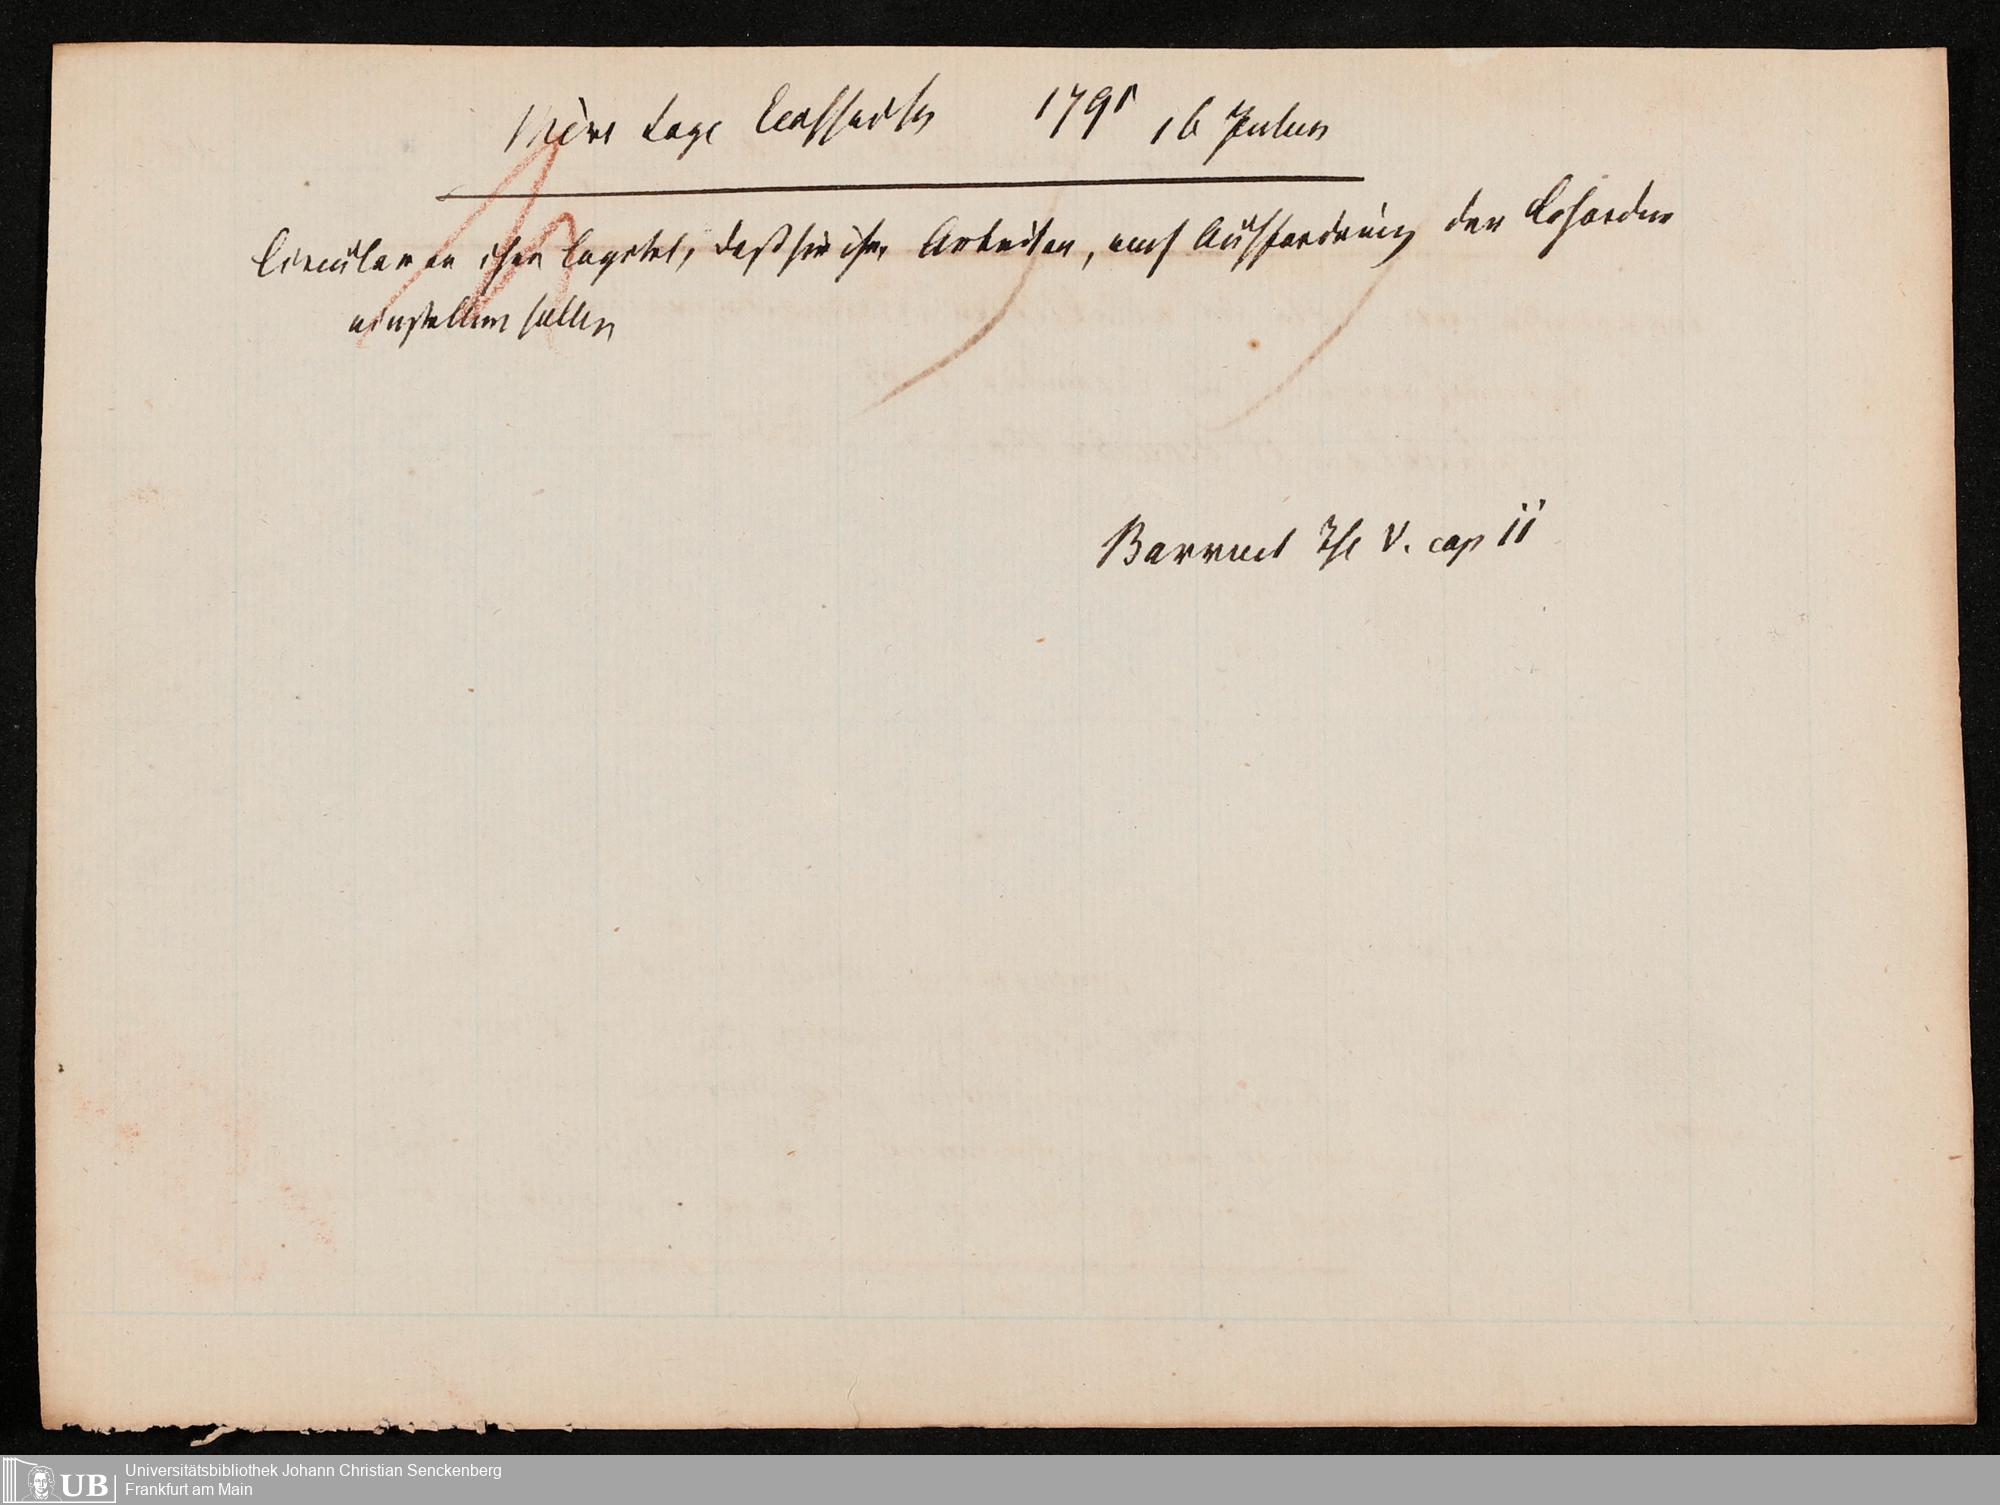 Mère Loge Ecossaise 1791 16 Julius
Circular an ihre Capitel, daß sie ihre Arbeiten, nach Aufforderung der Behörden
einstellen sollen
Barruel Thl V. cap 11
Universitätsbibliothek Johann Christian Senckenberg
Frankfurt am Main
UB